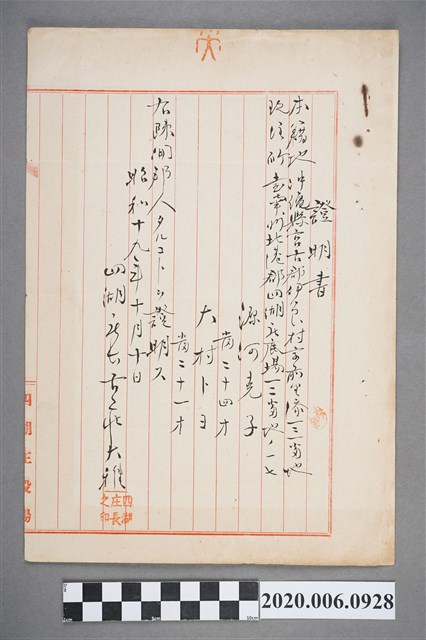 證明書
本籍地 沖縄縣宮古郡伊良部村字前里添一三番地
現住所 臺南州北港郡四湖庄 一三番地ノ一七
源河克子
當二十四才
大村トヨ
當三十一才
右陳 人タルコトヲ證明ス
昭和十九年十月十日
四湖庄長
四湖庄長之印
四湖庄役場
2cm
5cm
10cm
2020.006.0928